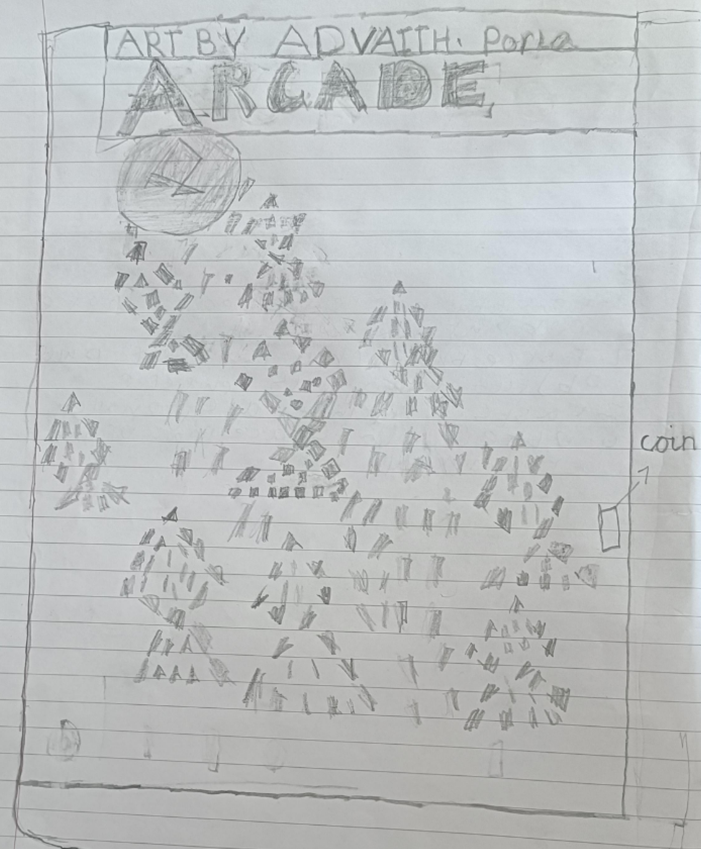 ART BY ADVAITH. Porla
ARCADE
coin